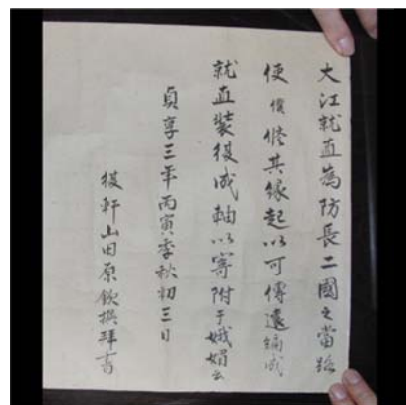 大江就直為防長二國之當路
使僕脩其緣起以可傳遠編成
就直裝復成軸以寄附于娥媚山
貞享三年丙寅季秋初三日
復軒山田原欽撰拜書